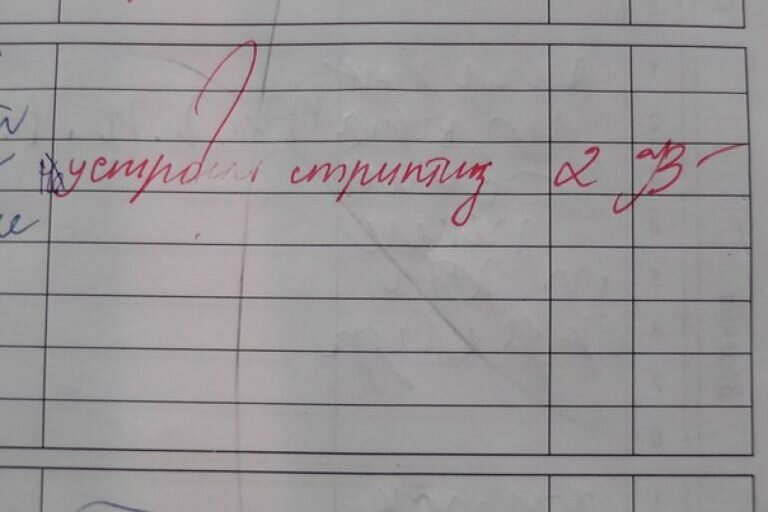 устроил стриптиз 2